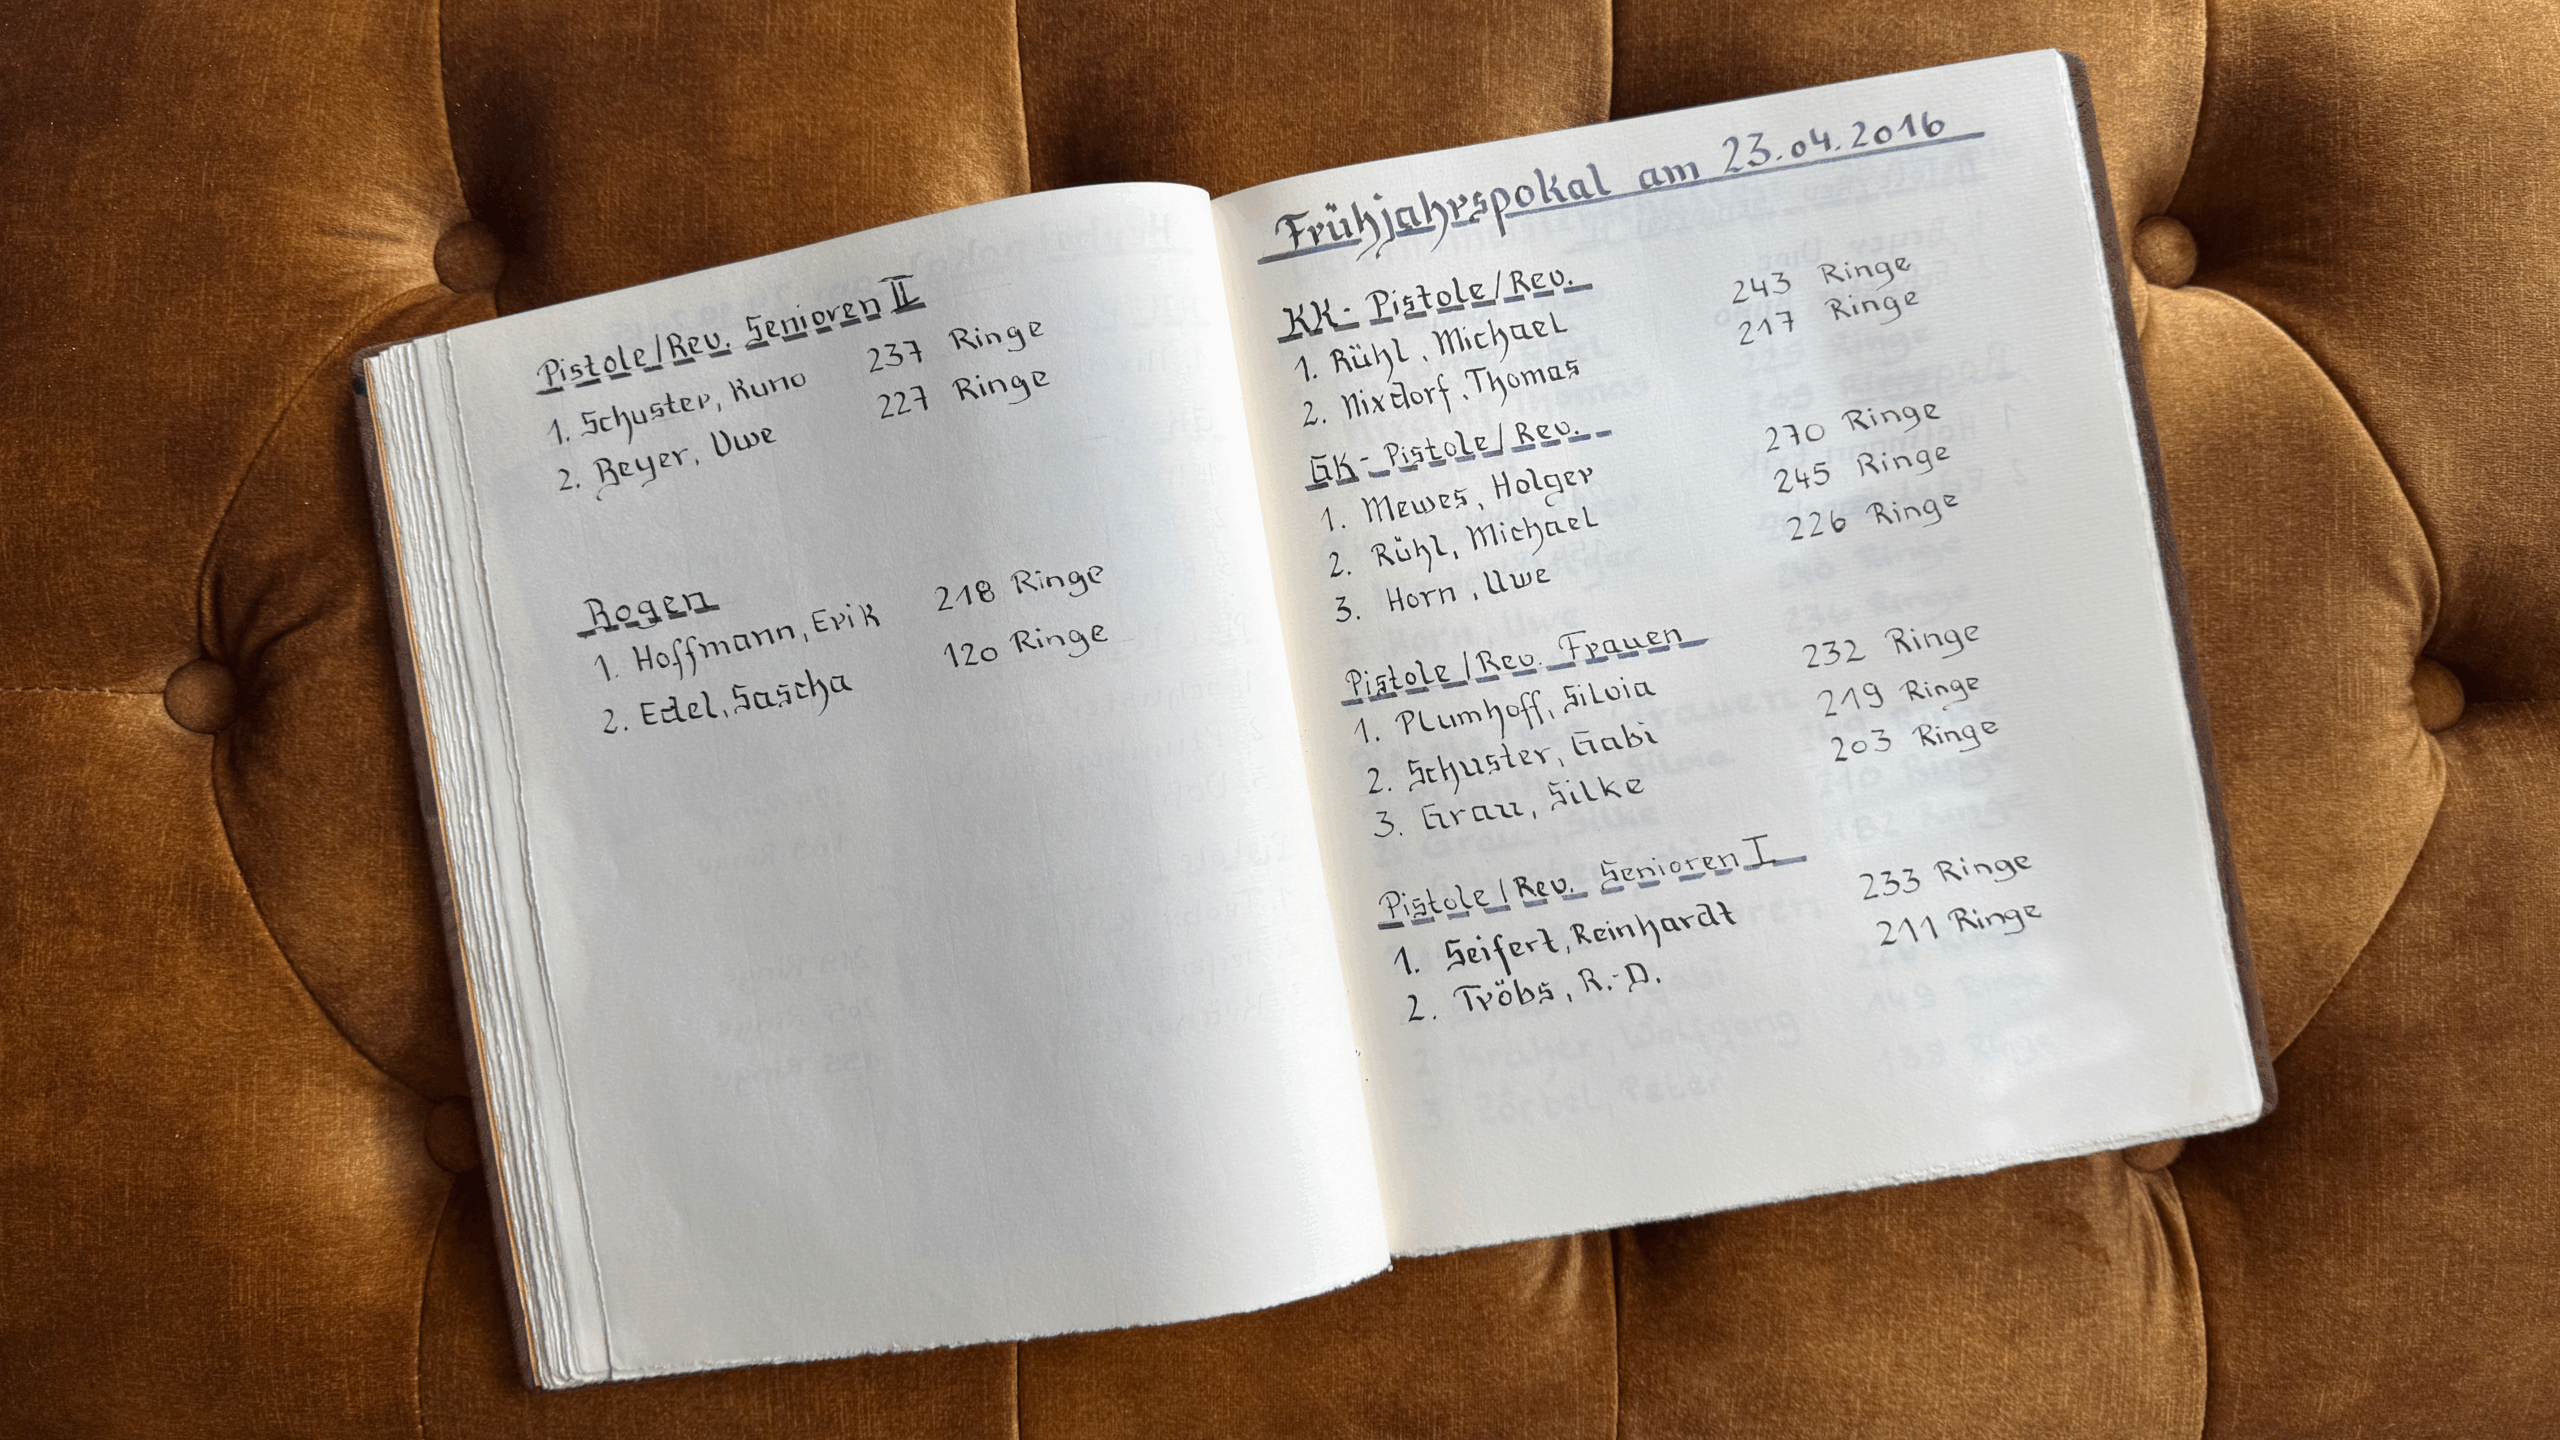 Pistole/Rev. Senioren II
1. Schuster, Kuno 237 Ringe
2. Beyer, Uwe 227 Ringe
Bogen
1. Hoffmann, Erik 218 Ringe
2. Edel, Sascha 120 Ringe
Frühjahrspokal am 23.04.2016
KK- Pistole/Rev.
1. Rühl, Michael 243 Ringe
2. Nixdorf, Thomas 217 Ringe
GK- Pistole/Rev.
1. Mewes, Holger 270 Ringe
2. Rühl, Michael 245 Ringe
3. Horn, Uwe 226 Ringe
Pistole/Rev. Frauen
1. Plumhoff, Silvia 232 Ringe
2. Schuster, Gabi 219 Ringe
3. Grau, Silke 203 Ringe
Pistole/Rev. Senioren I
1. Seifert, Reinhardt 233 Ringe
2. Tröbs, R.-D. 211 Ringe